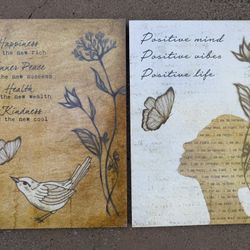 Happiness
the new rich
Inner Peace
the new success
Health
the new wealth
Kindness
the new cool
Positive mind
Positive vibes
Positive life